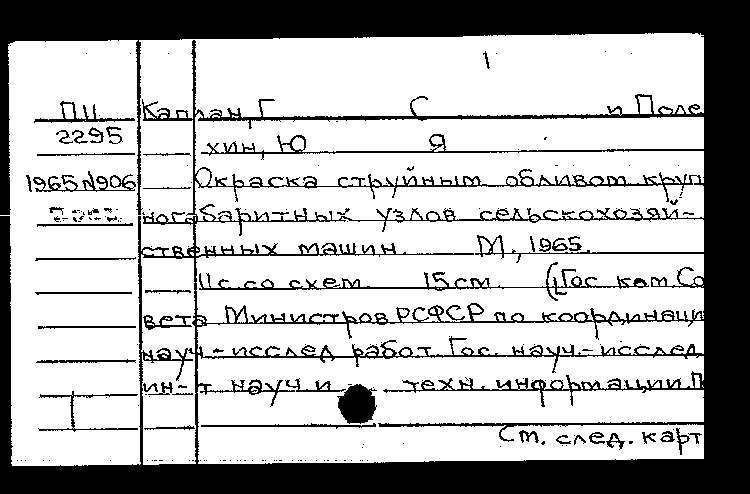 1
П11 Каплан, Г С и Поле
2295 хин, Ю Я
1965 №906 Окраска струйным обливом круп
ногабаритных узлов сельскохозяй-
ственных машин. М., 1965.
11с. со схем. 15см. (Гос ком. Со
вета Министров РСФСР по координаци
науч-исслед работ. Гос. науч-исслед
ин-т науч и техн. информации.
См. след. карт